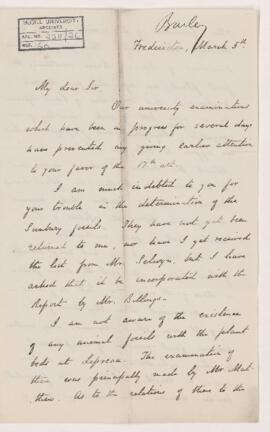 McGILL UNIVERSITY
ARCHIVES
ACC. NO.
REF.
Bailey
Fredericton, March 5th
My dear Sir,
Our university examinations
which have been in progress for several days
have prevented my giving earlier attention
to your favor of the 17th ult.
I am much indebted to you for
your trouble in the determination of the
Sunbury fossils. They have not yet been
returned to me, nor have I yet received
the list from Mr. Selwyn, but I have
asked that it be incorporated with the
Report by Mr. Billings.
I am not aware of the existence
of any animal fossils with the plant
beds at Lepreau. The examination of
these was principally made by Mr Mat-
thew. As to the relations of these to the